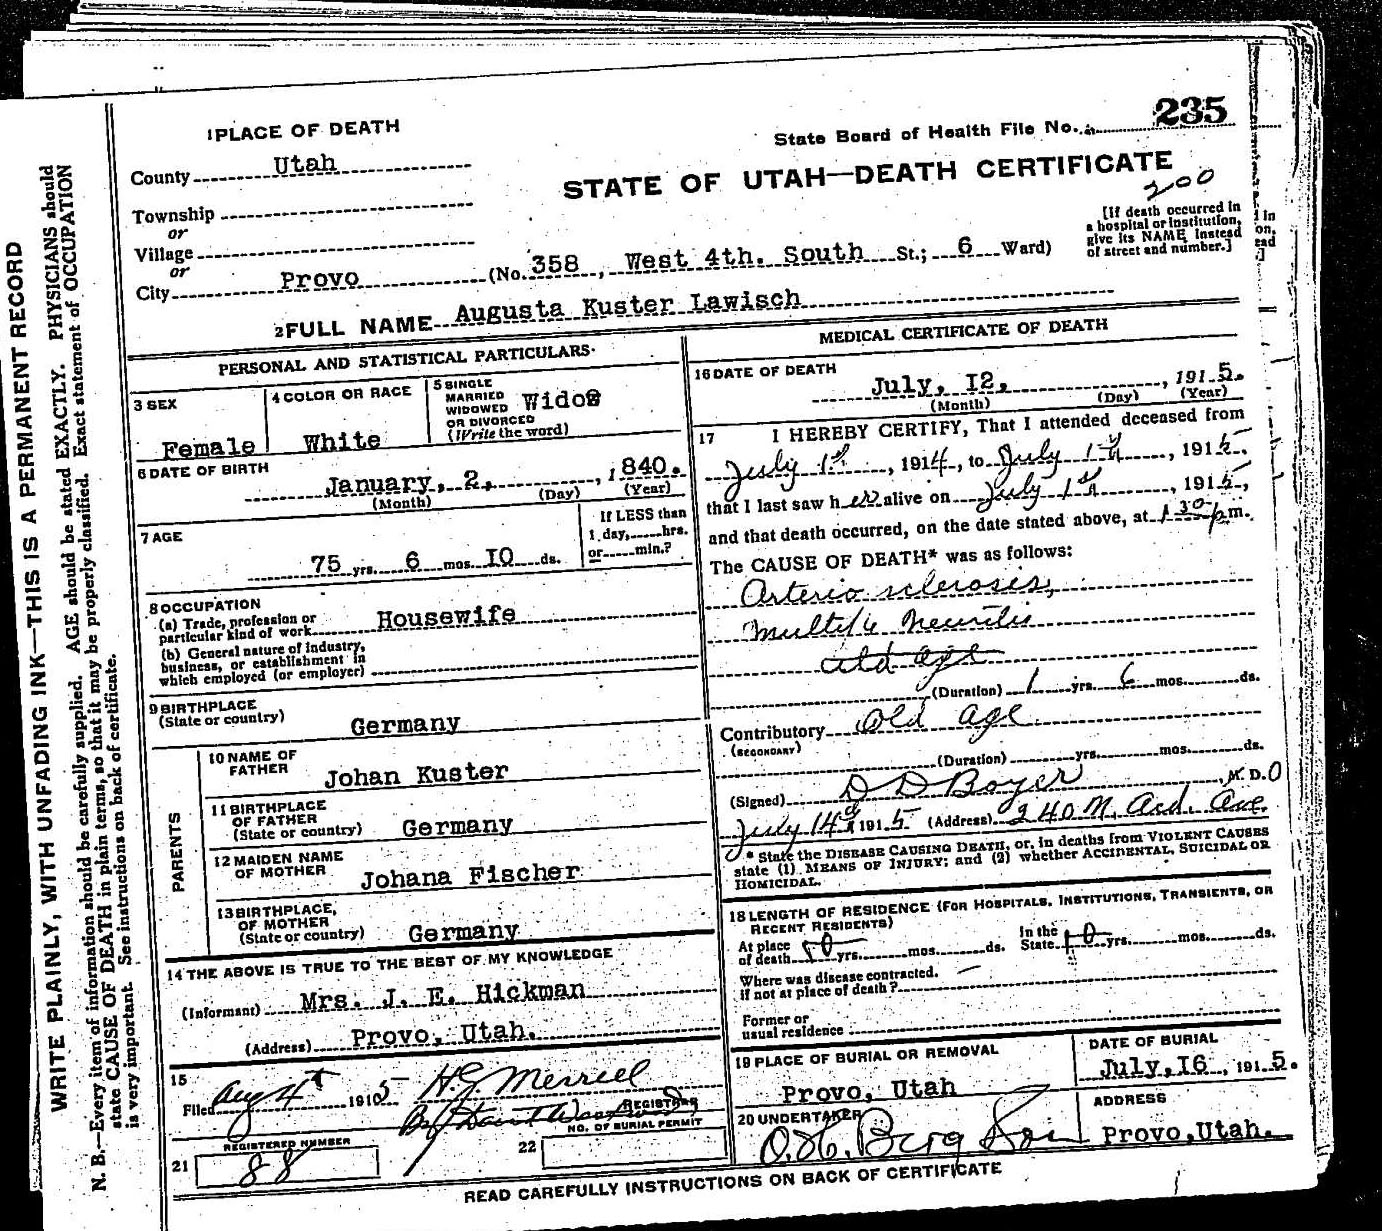 235
1 PLACE OF DEATH
State Board of Health File No.
County Utah
STATE OF UTAH—DEATH CERTIFICATE
200
Township
or
Village
or
City Provo (No. 358, West 4th. South St.; 6 Ward)
[If death occurred in
a hospital or institution,
give its NAME instead
of street and number.]
2 FULL NAME Augusta Kuster Lawisch
PERSONAL AND STATISTICAL PARTICULARS
3 SEX
Female
4 COLOR OR RACE
White
5 SINGLE
MARRIED
WIDOWED
OR DIVORCED
(Write the word)
Widow
6 DATE OF BIRTH
January, 2, , 1840.
(Month) (Day) (Year)
7 AGE
75 yrs. 6 mos. IO ds.
If LESS than
1 day, hrs.
or min.?
8 OCCUPATION
(a) Trade, profession or
particular kind of work Housewife
(b) General nature of industry,
business, or establishment in
which employed (or employer)
9 BIRTHPLACE
(State or country)
Germany
PARENTS
10 NAME OF
FATHER
Johan Kuster
11 BIRTHPLACE
OF FATHER
(State or country) Germany
12 MAIDEN NAME
OF MOTHER
Johana Fischer
13 BIRTHPLACE,
OF MOTHER
(State or country) Germany
14 THE ABOVE IS TRUE TO THE BEST OF MY KNOWLEDGE
(Informant) Mrs. J. E. Hickman
(Address) Provo, Utah.
15
Filed Aug 4th 1915 H.J. Merrell
By
REGISTRAR
REGISTERED NUMBER
NO. OF BURIAL PERMIT
21 88
22
MEDICAL CERTIFICATE OF DEATH
16 DATE OF DEATH
July, I2, , 1915.
(Month) (Day) (Year)
17 I HEREBY CERTIFY, That I attended deceased from
July 1st, 1914, to July 1st, 1915,
that I last saw her alive on July 1st, 1915,
and that death occurred, on the date stated above, at 1 30 p m.
The CAUSE OF DEATH* was as follows:
Arterio sclerosis,
multiple Neuritis
old age
(Duration) 1 yrs. 6 mos. ds.
Contributory Old age
(SECONDARY)
(Duration) yrs. mos. ds.
(Signed) D D Boyer, M. D. O
July 14th 1915 (Address) 240 N. Acd. Ave.
* State the DISEASE CAUSING DEATH, or, in deaths from VIOLENT CAUSES
state (1) MEANS OF INJURY; and (2) whether ACCIDENTAL, SUICIDAL OR
HOMICIDAL.
18 LENGTH OF RESIDENCE (FOR HOSPITALS, INSTITUTIONS, TRANSIENTS, OR
RECENT RESIDENTS)
At place
of death yrs. mos. ds.
In the
State yrs. mos. ds.
Where was disease contracted.
if not at place of death?
Former or
usual residence
19 PLACE OF BURIAL OR REMOVAL
Provo, Utah
DATE OF BURIAL
July, I6, 1915.
20 UNDERTAKER
O.H. Berg Son
ADDRESS
Provo, Utah.
READ CAREFULLY INSTRUCTIONS ON BACK OF CERTIFICATE
WRITE PLAINLY, WITH UNFADING INK—THIS IS A PERMANENT RECORD
N. B.—Every item of information should be carefully supplied. AGE should be stated EXACTLY. PHYSICIANS should
state CAUSE OF DEATH in plain terms, so that it may be properly classified. Exact statement of OCCUPATION
is very important. See instructions on back of certificate.